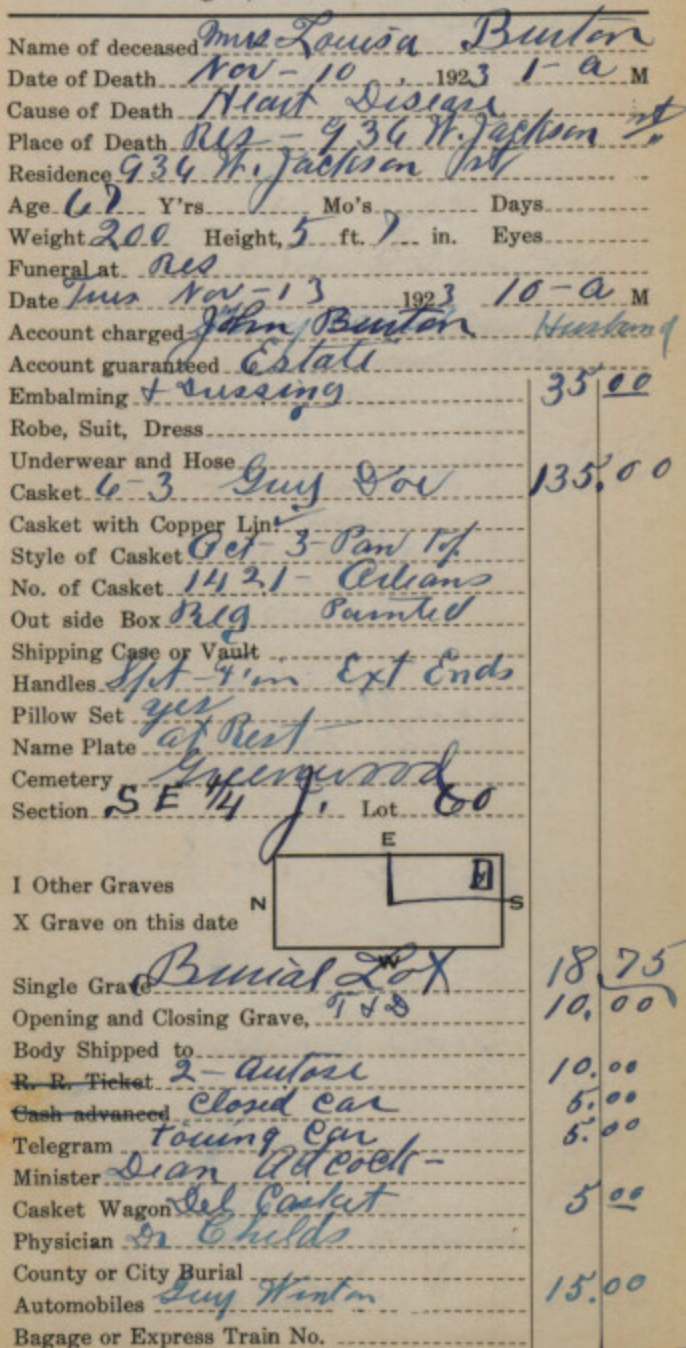 Name of deceased Mrs Louisa Burton
Date of Death Nov - 10, 1923 1 - a M
Cause of Death Heart Disease
Place of Death Res - 936 W. Jackson st
Residence 936 W. Jackson st
Age 67 Y'rs Mo's Days
Weight 200 Height, 5 ft. 7 in. Eyes
Funeral at Res
Date Tues Nov - 13 1923 10 - a M
Account charged John Burton Husband
Account guaranteed Estate
Embalming & Dressing 35 00
Robe, Suit, Dress
Underwear and Hose
Casket 6-3 Grey Doe 135.00
Casket with Copper Lin
Style of Casket Oct - 3 - Pan Top
No. of Casket 1421 - Orleans
Out side Box Reg Painted
Shipping Case or Vault
Handles Ext Ends
Pillow Set yes
Name Plate at Rest
Cemetery Greenwood
Section SE 1/4 J. Lot 60
E
I Other Graves
N S
X Grave on this date
W
Single Grave Burial Lot 18.75
Opening and Closing Grave, T & D 10.00
Body Shipped to
R. R. Ticket 2 - Autose 10.00
Cash advanced Closed Car 5.00
Telegram Touring Car 5.00
Minister Dean Adcock -
Casket Wagon Del Casket 5 00
Physician Dr Childs
County or City Burial
Automobiles Grey Winton 15.00
Bagage or Express Train No.